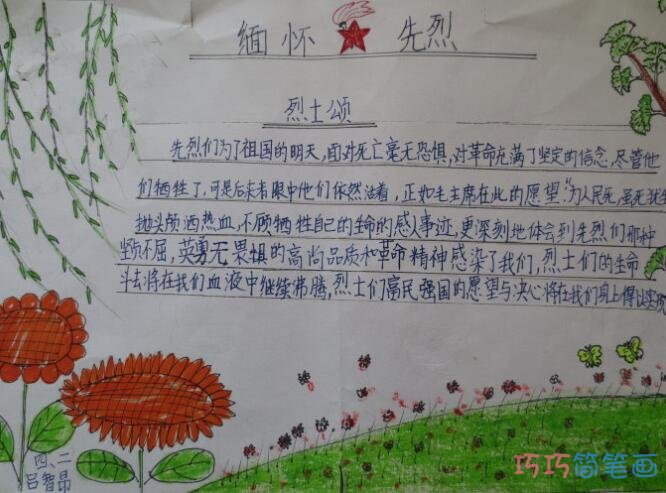 缅怀 先烈
烈士颂
先烈们为了祖国的明天,面对死亡毫无恐惧,对革命充满了坚定的信念,尽管他
们牺牲了,可是后来者眼中他们依然活着,正如毛主席在此的愿望"为人民死,虽死犹生
抛头颅洒热血,不顾牺牲自己的生命的感人事迹,更深刻地体会到先烈们那种
坚贞不屈,英勇无畏惧的高尚品质和革命精神感染了我们,烈士们的生命
斗志将在我们血液中继续沸腾,烈士们富民强国的愿望与决心将在我们身上得以实现
四、二
吕智昂
巧巧简笔画